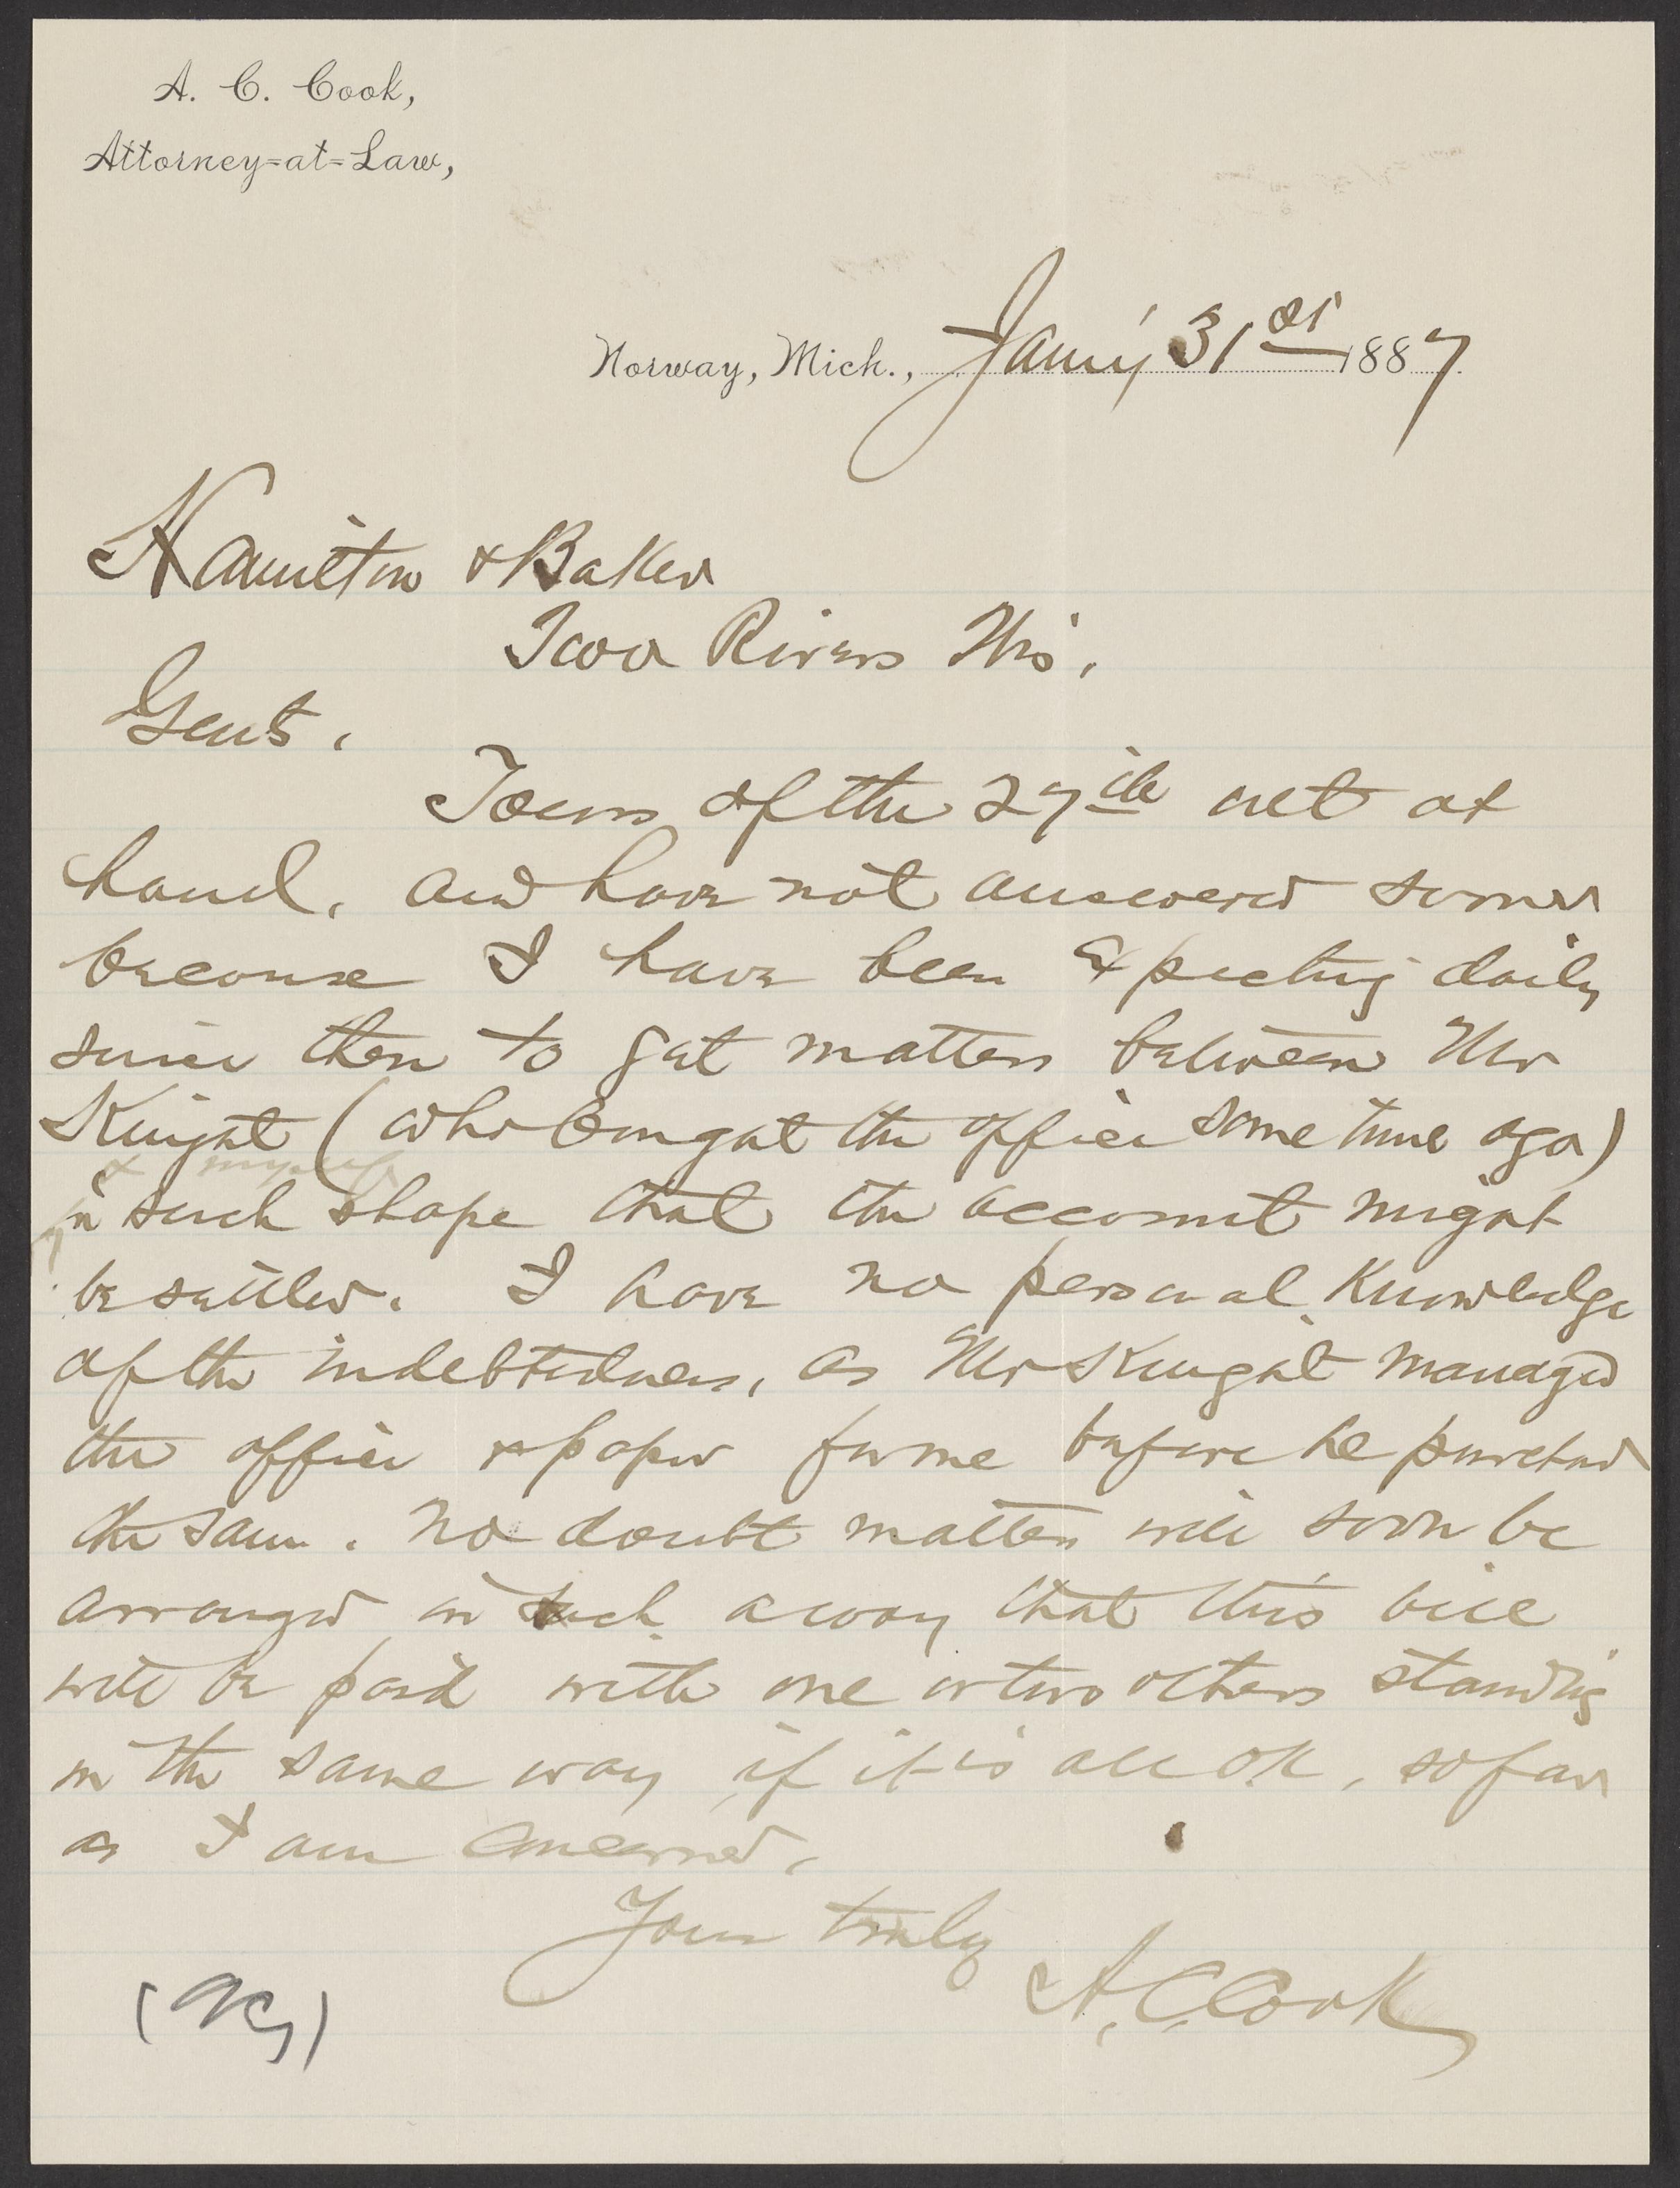 A. C. Cook,
Attorney-at-Law,
Norway, Mich., Jan'y 31st 1887
Hamilton & Baker
Two Rivers Wis.
Gents.
Yours of the 27th ult at
hand. and have not answered sooner
because I have been expecting daily
since then to get matters between Mr
Knight (who bought the office some time ago)
& myself
in such shape that the account might
be settled. I have no personal knowledge
of the indebtedness, as Mr Knight managed
the office & paper for me before he purchased
the same. No doubt matters will soon be
arranged in such a way that this bill
will be paid with one or two others standing
in the same way, if it is all OK, so far
as I am concerned.
Yours truly
A. C. Cook